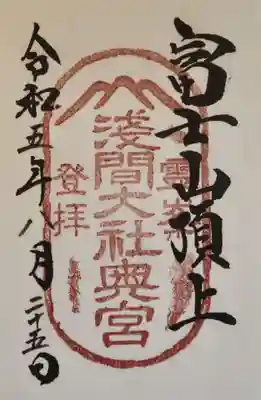 富士山頂上
霊峯
淺間大社奥宮
登拝
令和五年八月二十五日